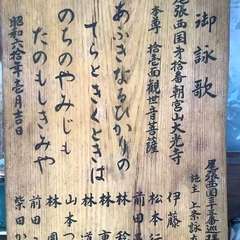 御詠歌
尾張西国第拾番朝宮山大光寺
本尊 拾壱面観世音菩薩
あふぎなるひかりの
てらときくときは
のちのやみじも
たのもしきみや
昭和六拾年壱月吉日
尾張西国三十三番巡礼
上条詠
伊藤
松本
前田
林
林
林
山本
林
前田
柴田か